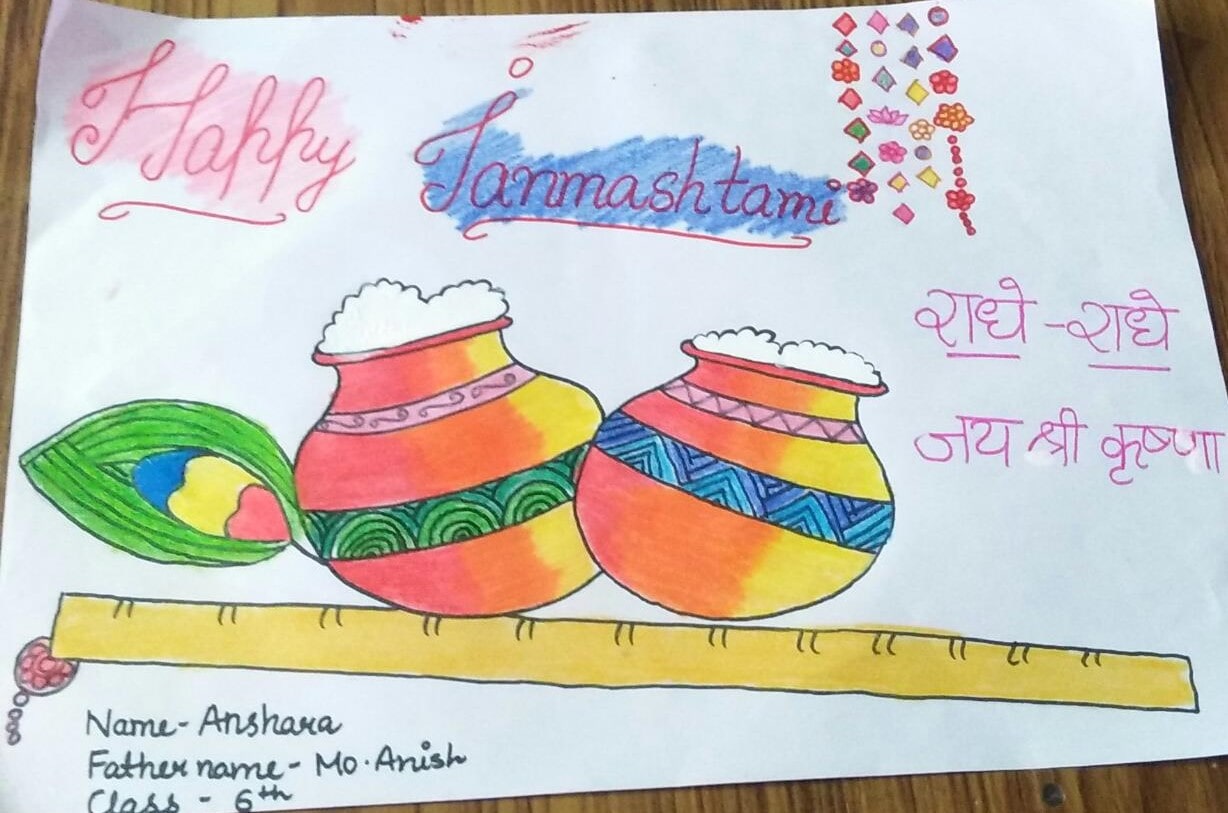 Happy Janmashtami
राधे - राधे
जय श्री कृष्णा
Name - Anshara
Father name - Mo. Anish
Class - 6th